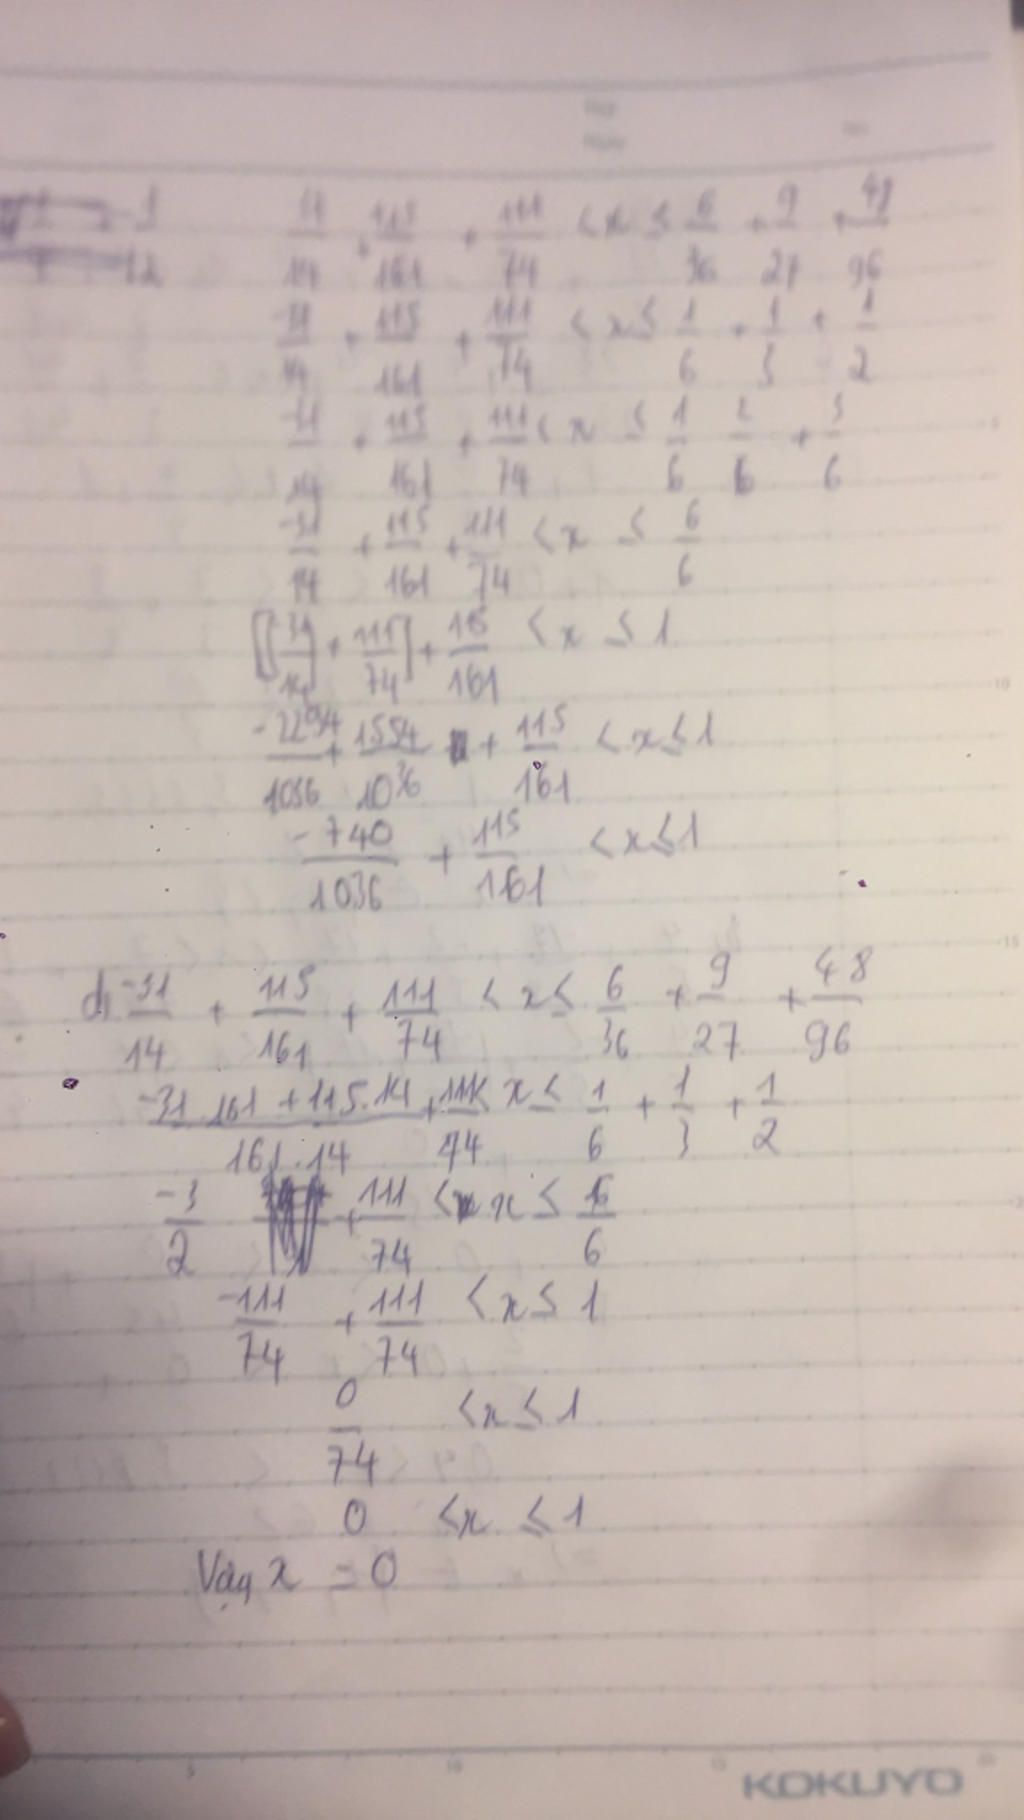 -31/14 + 115/161 + 111/74 < x ≤ 6/36 + 9/27 + 48/96
-31/14 + 115/161 + 111/74 < x ≤ 1/6 + 1/3 + 1/2
-31/14 + 115/161 + 111/74 < x ≤ 1/6 2/6 + 3/6
-31/14 + 115/161 + 111/74 < x ≤ 6/6
[[-31/14] + 111/74] + 115/161 < x ≤ 1
-2294/1036 + 1554/1036 + 115/161 < x ≤ 1
-740/1036 + 115/161 < x ≤ 1
d, -31/14 + 115/161 + 111/74 < x ≤ 6/36 + 9/27 + 48/96
-31.161 + 115.14/161.14 + 111/74 < x ≤ 1/6 + 1/3 + 1/2
-3/2 + 111/74 < x ≤ 6/6
-111/74 + 111/74 < x ≤ 1
0/74 < x ≤ 1
0 < x ≤ 1
Vậy x = 0
KOKUYO